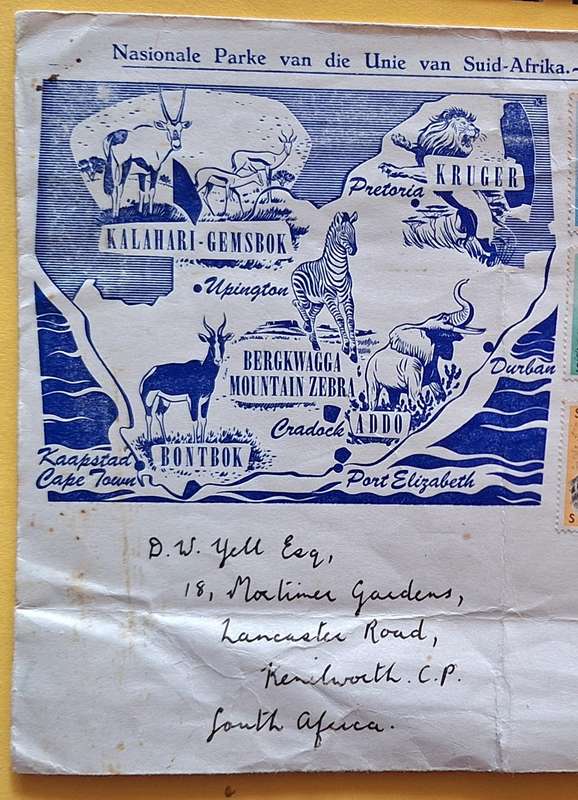 Nasionale Parke van die Unie van Suid-Afrika.~
KRUGER
Pretoria
KALAHARI-GEMSBOK
Upington
BERGKWAGGA
MOUNTAIN ZEBRA
Durban
ADDO
Cradock
BONTBOK
Kaapstad
Cape Town
Port Elizabeth
D. W. Yell Esq,
18, Mortimer Gardens,
Lancaster Road,
Kenilworth. C.P.
South Africa.
S